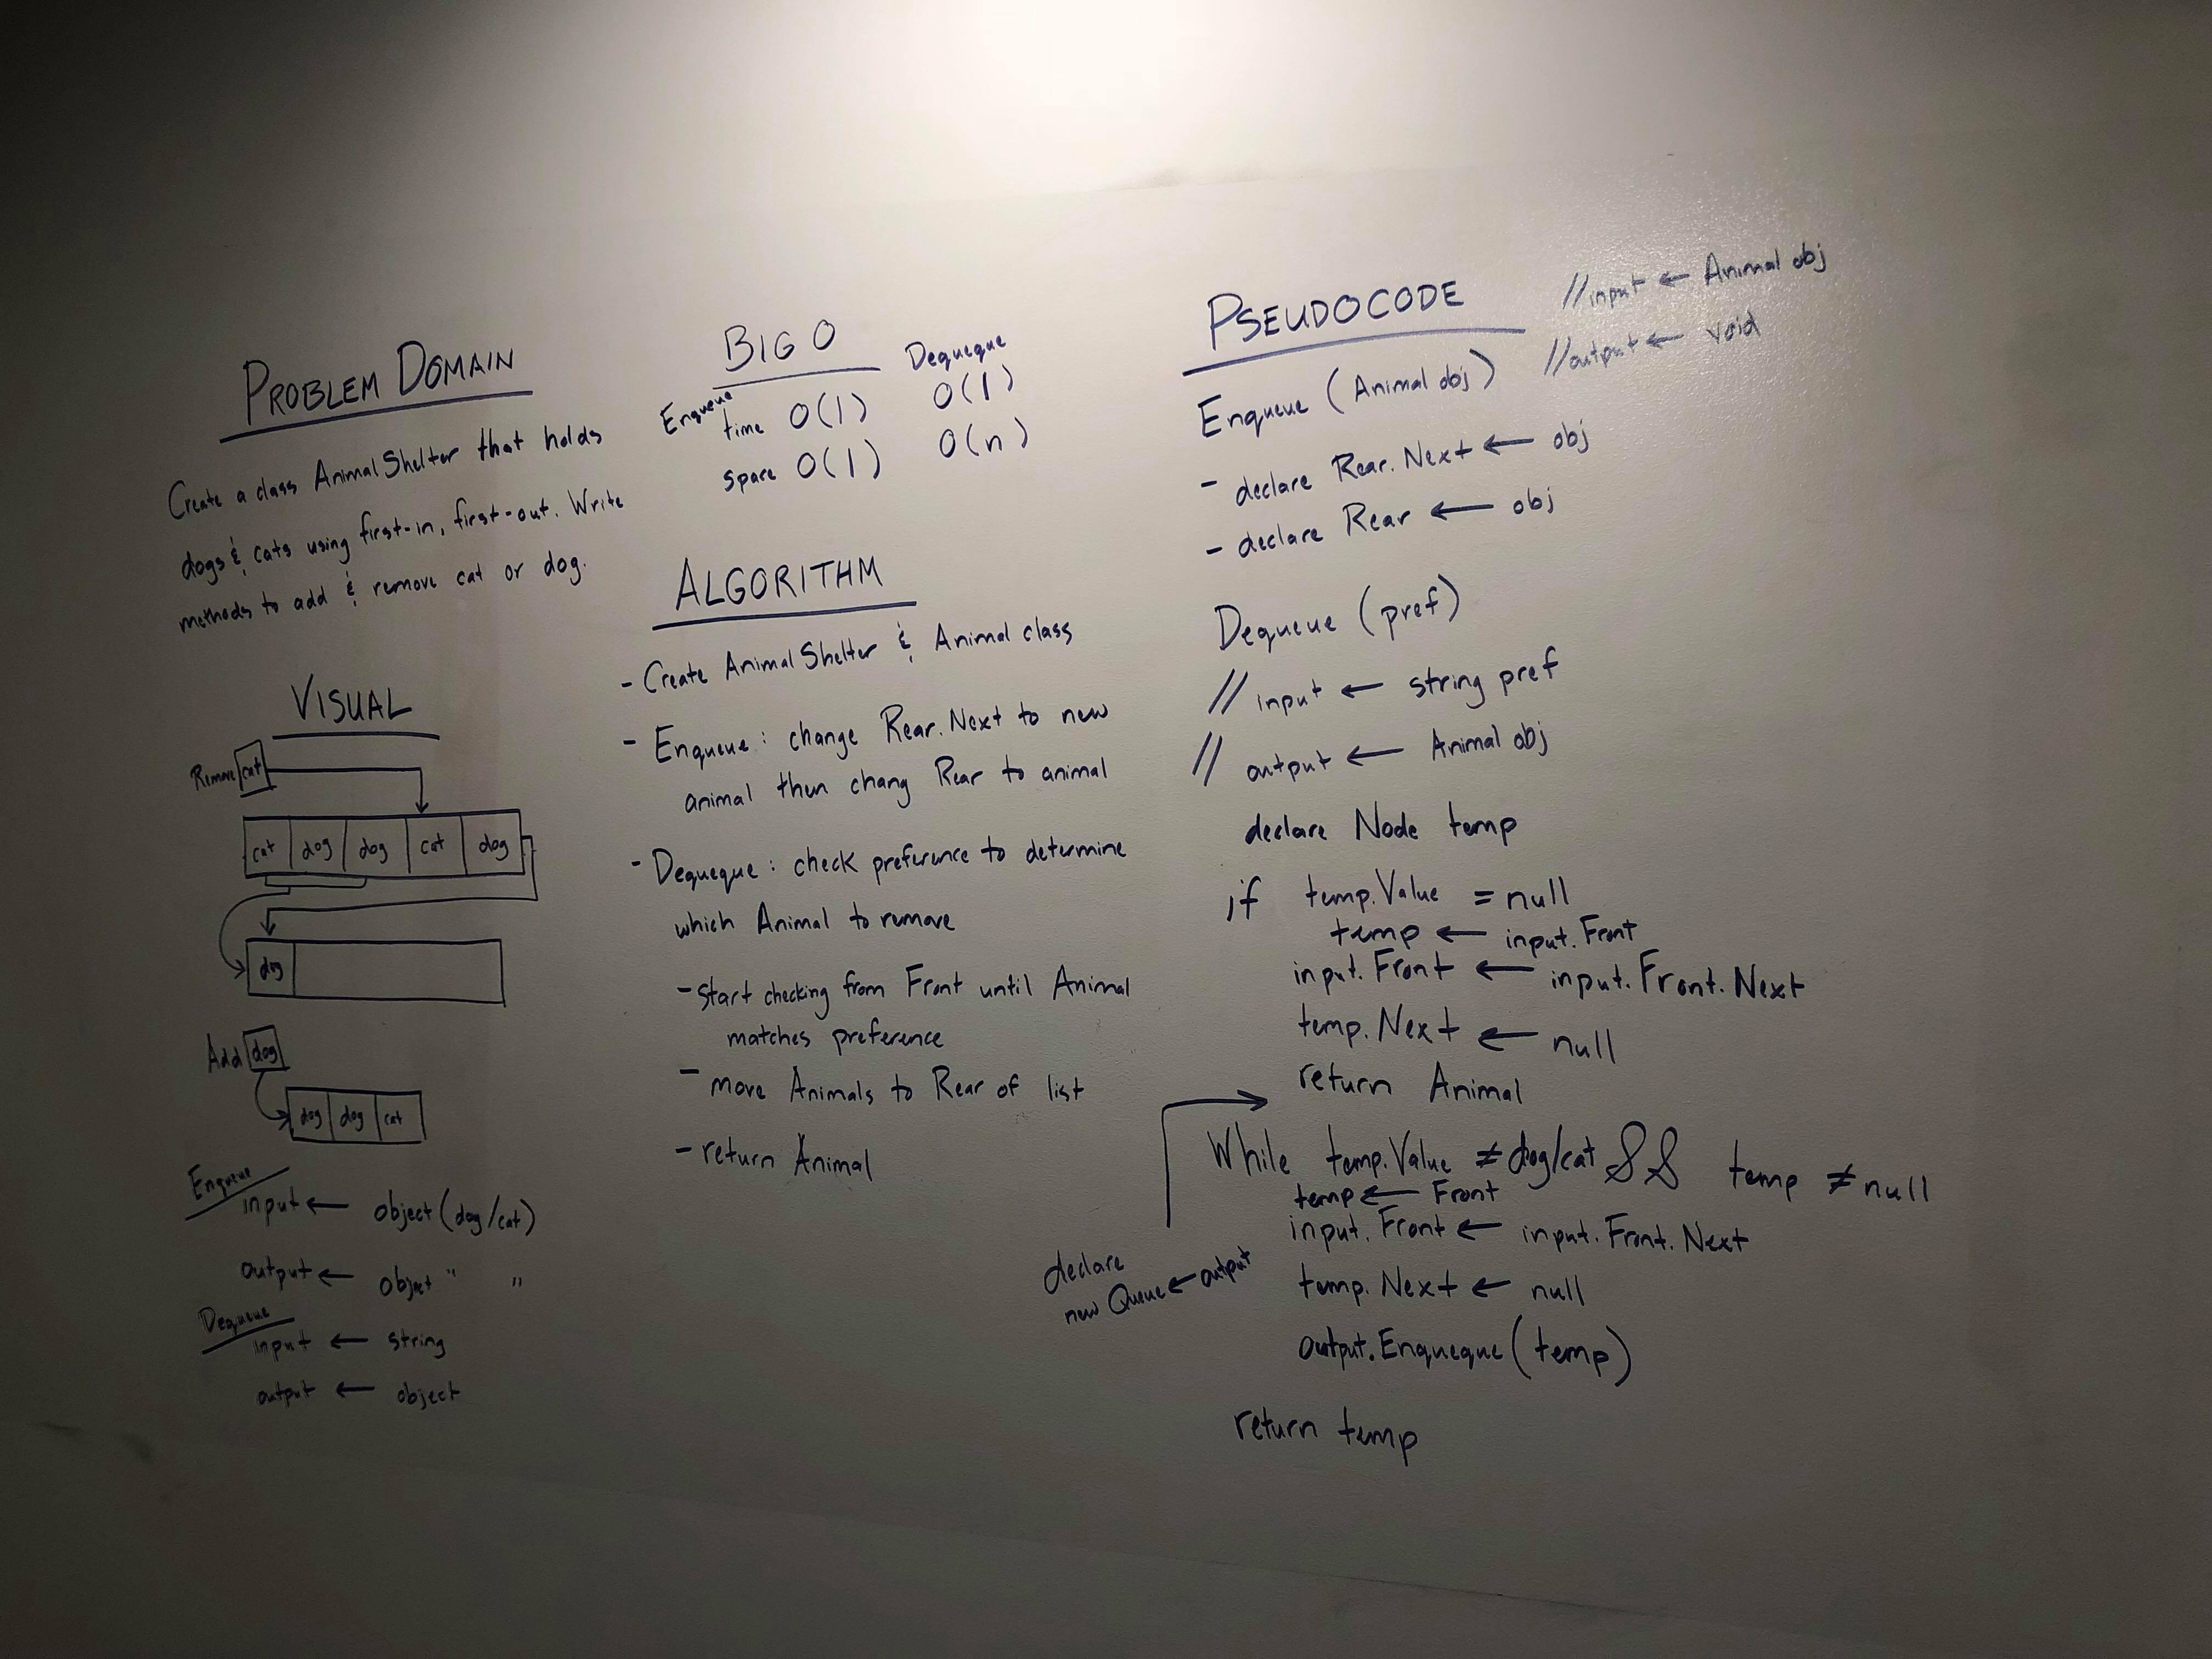 PROBLEM DOMAIN
Create a class AnimalShelter that holds
dogs & cats using first-in, first-out. Write
methods to add & remove cat or dog.
VISUAL
Remove cat
cat dog dog cat dog
dog
Add dog
dog dog cat
Enqueue
input ← object (dog/cat)
output ← object " "
Dequeue
input ← string
output ← object
BIG O
Enqueue Dequeque
time O(1) O(1)
space O(1) O(n)
ALGORITHM
- Create AnimalShelter & Animal class
- Enqueue: change Rear.Next to new
animal then chang Rear to animal
- Dequeque: check preference to determine
which Animal to remove
- start checking from Front until Animal
matches preference
- move Animals to Rear of list
- return Animal
PSEUDOCODE
// input ← Animal obj
// output ← void
Enqueue (Animal obj)
- declare Rear.Next ← obj
- declare Rear ← obj
Dequeue (pref)
// input ← string pref
// output ← Animal obj
declare Node temp
if temp.Value = null
temp ← input.Front
input.Front ← input.Front.Next
temp.Next ← null
return Animal
declare
new Queue ← output
While temp.Value ≠ dog/cat && temp ≠ null
temp ← Front
input.Front ← input.Front.Next
temp.Next ← null
output.Enqueque(temp)
return temp